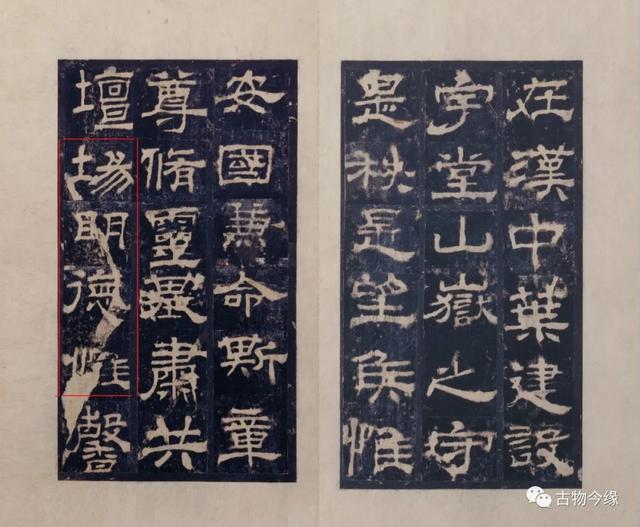 在漢中葉建設
宇堂山嶽之守
是秩是望侯惟
安國兼命斯章
尊脩靈基肅共
壇場明德惟馨
古物今缘